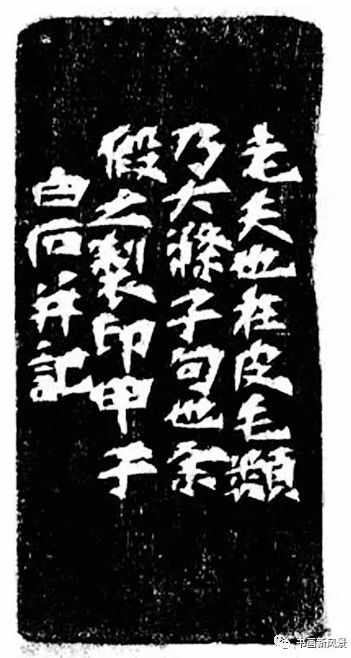 老夫也在皮毛類
乃大滌子句也余
假之製印甲子
白石并記
书画新风景